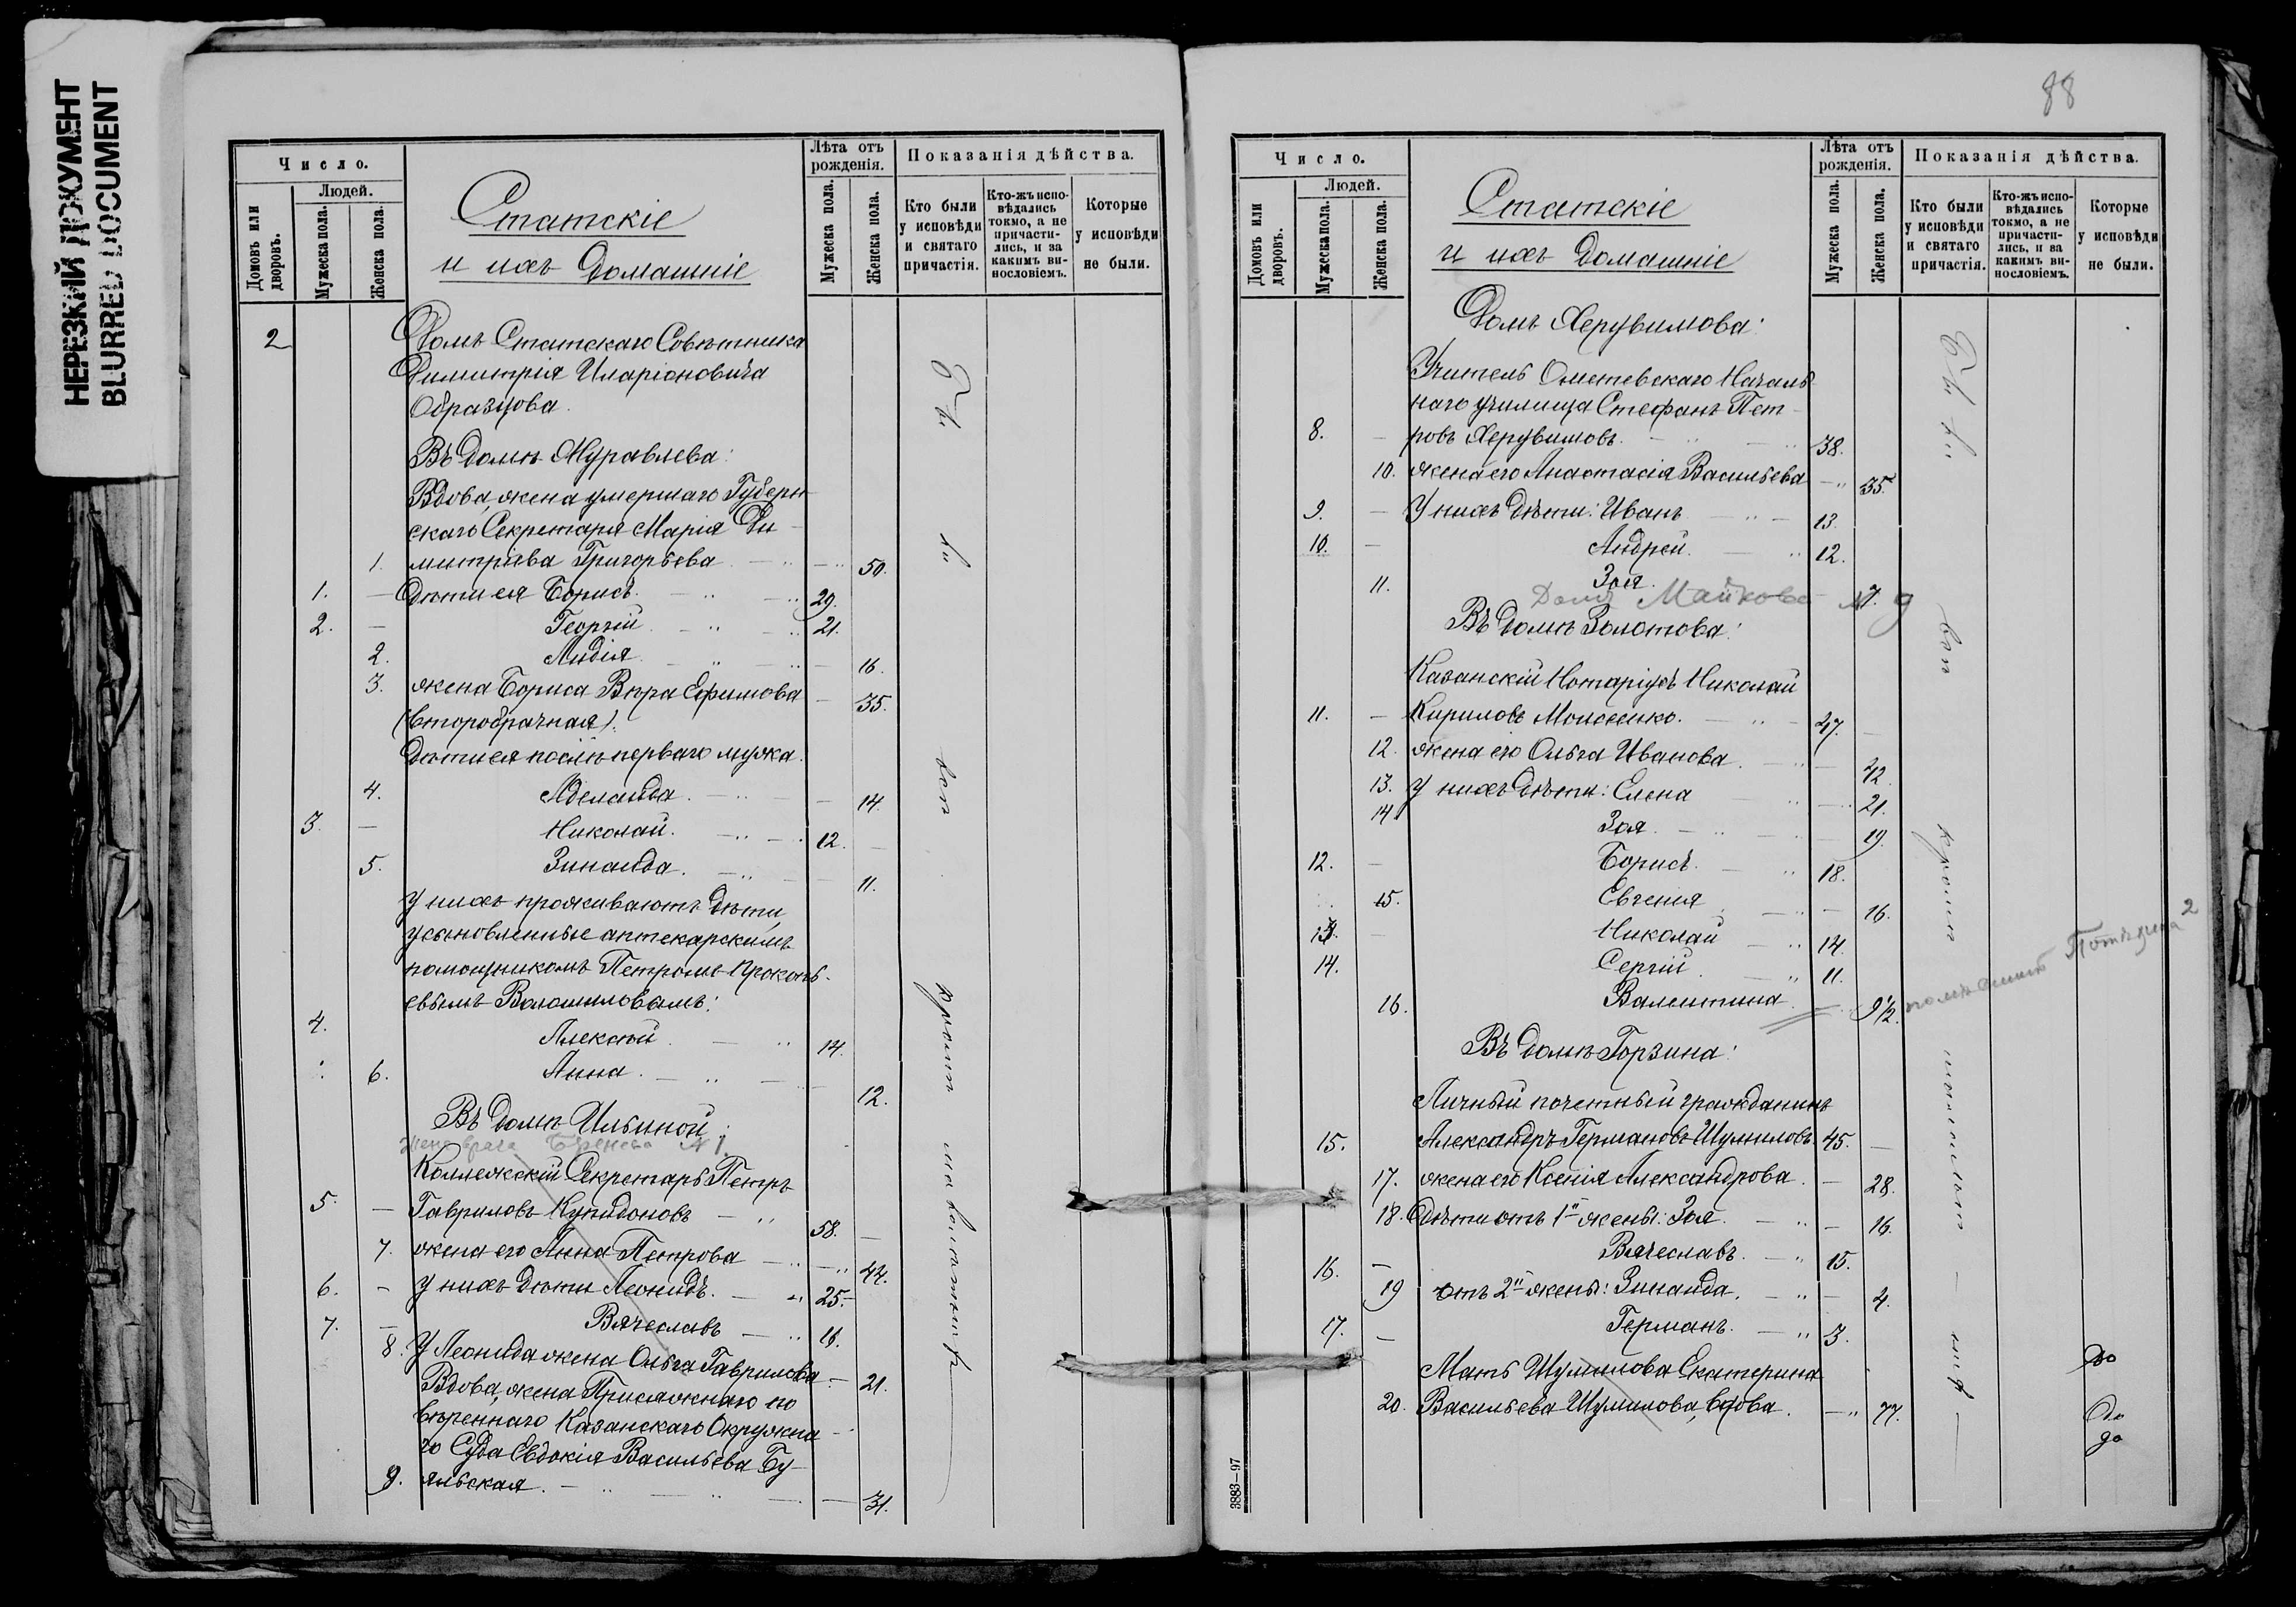 НЕРЕЗКИЙ ДОКУМЕНТ
BLURRED DOCUMENT
Число.
Людей.
Домовъ или дворовъ.
Мужеска пола.
Женска пола.
Статскіе
и ихъ домашніе
Лѣта отъ рожденія.
Мужеска пола.
Женска пола.
Показанія дѣйства.
Кто были у исповѣди и святаго причастія.
Кто-жъ испо-
вѣдались
токмо, а не
причасти-
лись, и за
какимъ ви-
нословіемъ.
Которые у исповѣди не были.
2 Домъ Статскаго Совѣтника
Димитрія Иларіоновича
Образцова.
Въ домѣ Журавлева:
Вдова, жена умершаго Губерн-
скаго Секретаря Марія Ди-
1. митріева Григорьева 50.
1. Дѣти ея Борисъ 29.
2. Георгій 21.
2. Лидія 16.
3. жена Бориса Вѣра Ефимова 35.
(второбрачная).
Дѣти ея послѣ перваго мужа.
4. Аделаида 14.
3. Николай 12.
5. Зинаида 11.
У нихъ проживаютъ дѣти,
усыновленные аптекарскимъ
помощникомъ Петромъ Прокопь-
евымъ Волошиловымъ:
4. Алексѣй 14.
6. Анна 12.
Въ домѣ Ильиной:
жена врача № 1.
Коллежскій Секретарь Петръ
5. Гавриловъ Купидоновъ 58.
7. жена его Анна Петрова 44.
6. У нихъ дѣти Леонидъ 25.
7. Вячеславъ 16.
8. У Леонида жена Ольга Гаврилова 21.
Вдова, жена Присяжнаго по-
вѣреннаго Казанскаго Окружна-
го Суда Евдокія Васильева Бу-
9. яльская 31.
Бы
ли
всѣ
кромѣ
малолѣтнихъ
88
Число.
Людей.
Домовъ или дворовъ.
Мужеска пола.
Женска пола.
Статскіе
и ихъ домашніе
Лѣта отъ рожденія.
Мужеска пола.
Женска пола.
Показанія дѣйства.
Кто были у исповѣди и святаго причастія.
Кто-жъ испо-
вѣдались
токмо, а не
причасти-
лись, и за
какимъ ви-
нословіемъ.
Которые у исповѣди не были.
Домъ Херувимова:
Учитель Ометевскаго Началь-
наго училища Стефанъ Пет-
8. ровъ Херувимовъ 38.
10. жена его Анастасія Васильева 35.
9. У нихъ дѣти: Иванъ 13.
10. Андрей 12.
11. Зоя 9
Домъ Майкова
Въ домѣ Золотова:
Казанскій Нотаріусъ Николай
11. Кириловъ Моисеенко 47.
12. жена его Ольга Иванова 42.
13. У нихъ дѣти: Елена 21.
14 Зоя 19.
12. Борисъ 18.
15. Евгенія 16.
13. Николай 14.
14. Сергій 11.
16. Валентина 9½.
Въ домѣ Горзина:
Личный почетный гражданинъ
15. Александръ Германовъ Шумиловъ 45.
17. жена его Ксенія Александрова 28.
18. Дѣти отъ 1й жены: Зоя 16.
16. Вячеславъ 15.
19 отъ 2й жены: Зинаида 4.
17. Германъ 3.
Мать Шумилова Екатерина
20. Васильева Шумилова, вдова 77.
Бы ли
всѣ
кромѣ
3883—97